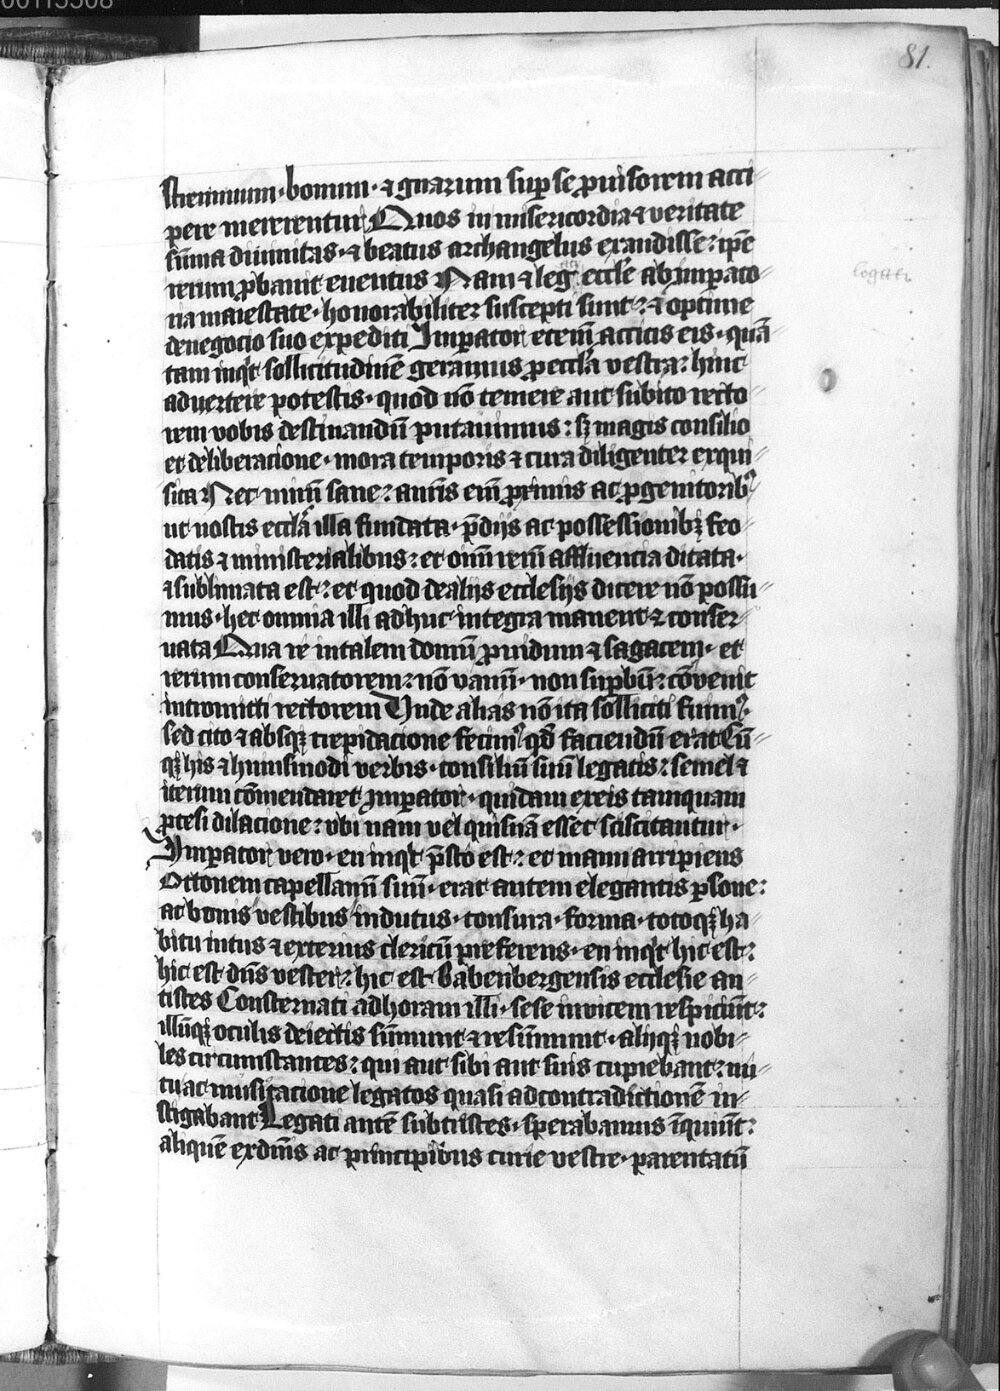 00115508
81.
strennuum · bonum · ⁊ gnarum sup se ꝓuisorem acci
pere mererentur Quos in misericordia ⁊ veritate
sūma diuinitas · ⁊ beatus archangelus exaudisse : ipē
rerum ꝓbauit euentus Nam ⁊ legati eccl̄e ab impato
ria maiestate · honorabiliter suscepti sunt : ⁊ optime
legati
de negocio suo expediti Imperator eteīm accitis eis · quā
tam inqͥt sollicitudinē geramus ꝓ eccl̄ia vestra : hinc
aduertere potestis · quod nō temere aut subito recto
rem vobis destinandū putauimus : sꝫ magis consilio
et deliberacione · mora temporis ⁊ cura diligenter exqui
sita Nec mirū sane : auris eīm ꝓximis ac ꝓgenitoribꝰ
ut nostis eccl̄ia illa fundata · p̄dijs ac possessionibꝫ feo
datis ⁊ ministerialibus : et om̄i rerū affluencia ditata ·
⁊ sublimata est : et quod de alijs ecclesijs dicere nō possu
mus · hec omnia illi adhuc integra manent ⁊ conser
uata Qua re in talem domū ꝓuidum ⁊ sagacem · et
rerum conseruatorem : nō vanū · non supbū : cōvenit
intromitti rectorem Unde alias nō ita solliciti fuimꝰ ·
sed cito ⁊ absqꝫ trepidacione fecimꝰ qd̄ faciendū erat Cū
qꝫ his ⁊ huiusmodi verbis · consiliū suū legatis : semel ⁊
iterum cōmendaret Imperator · quidam ex eis tamquam
ꝓtesi dilacione : vbi nam vel quisnā esset sciscitantur ·
Imperator vero · en inqͥt p̄sto est : et manu arripiens
Ottonem capellanū suū · erat autem elegantis ꝑsone :
ac bonis vestibus indutus · tonsura · forma · totoqꝫ ha
bitu intus ⁊ exterius clericū preferens · en inqͥt hic est :
hic est dn̄s vester : hic est Babenbergensis ecclesie an
tistes Consternati ad horam illi · sese inuicem respiciūt :
illūqꝫ oculis deiectis sūmunt ⁊ resūmunt · aliqꝫ nobi
les circumstantes : qui aut sibi aut suis cupiebant : nu
tu ac musitacione legatos quasi ad contradictionē in
stigabant Legati autē subtristes · sperabamus īquiūt :
aliquē ex dn̄is ac principibus curie vestre · parentatū